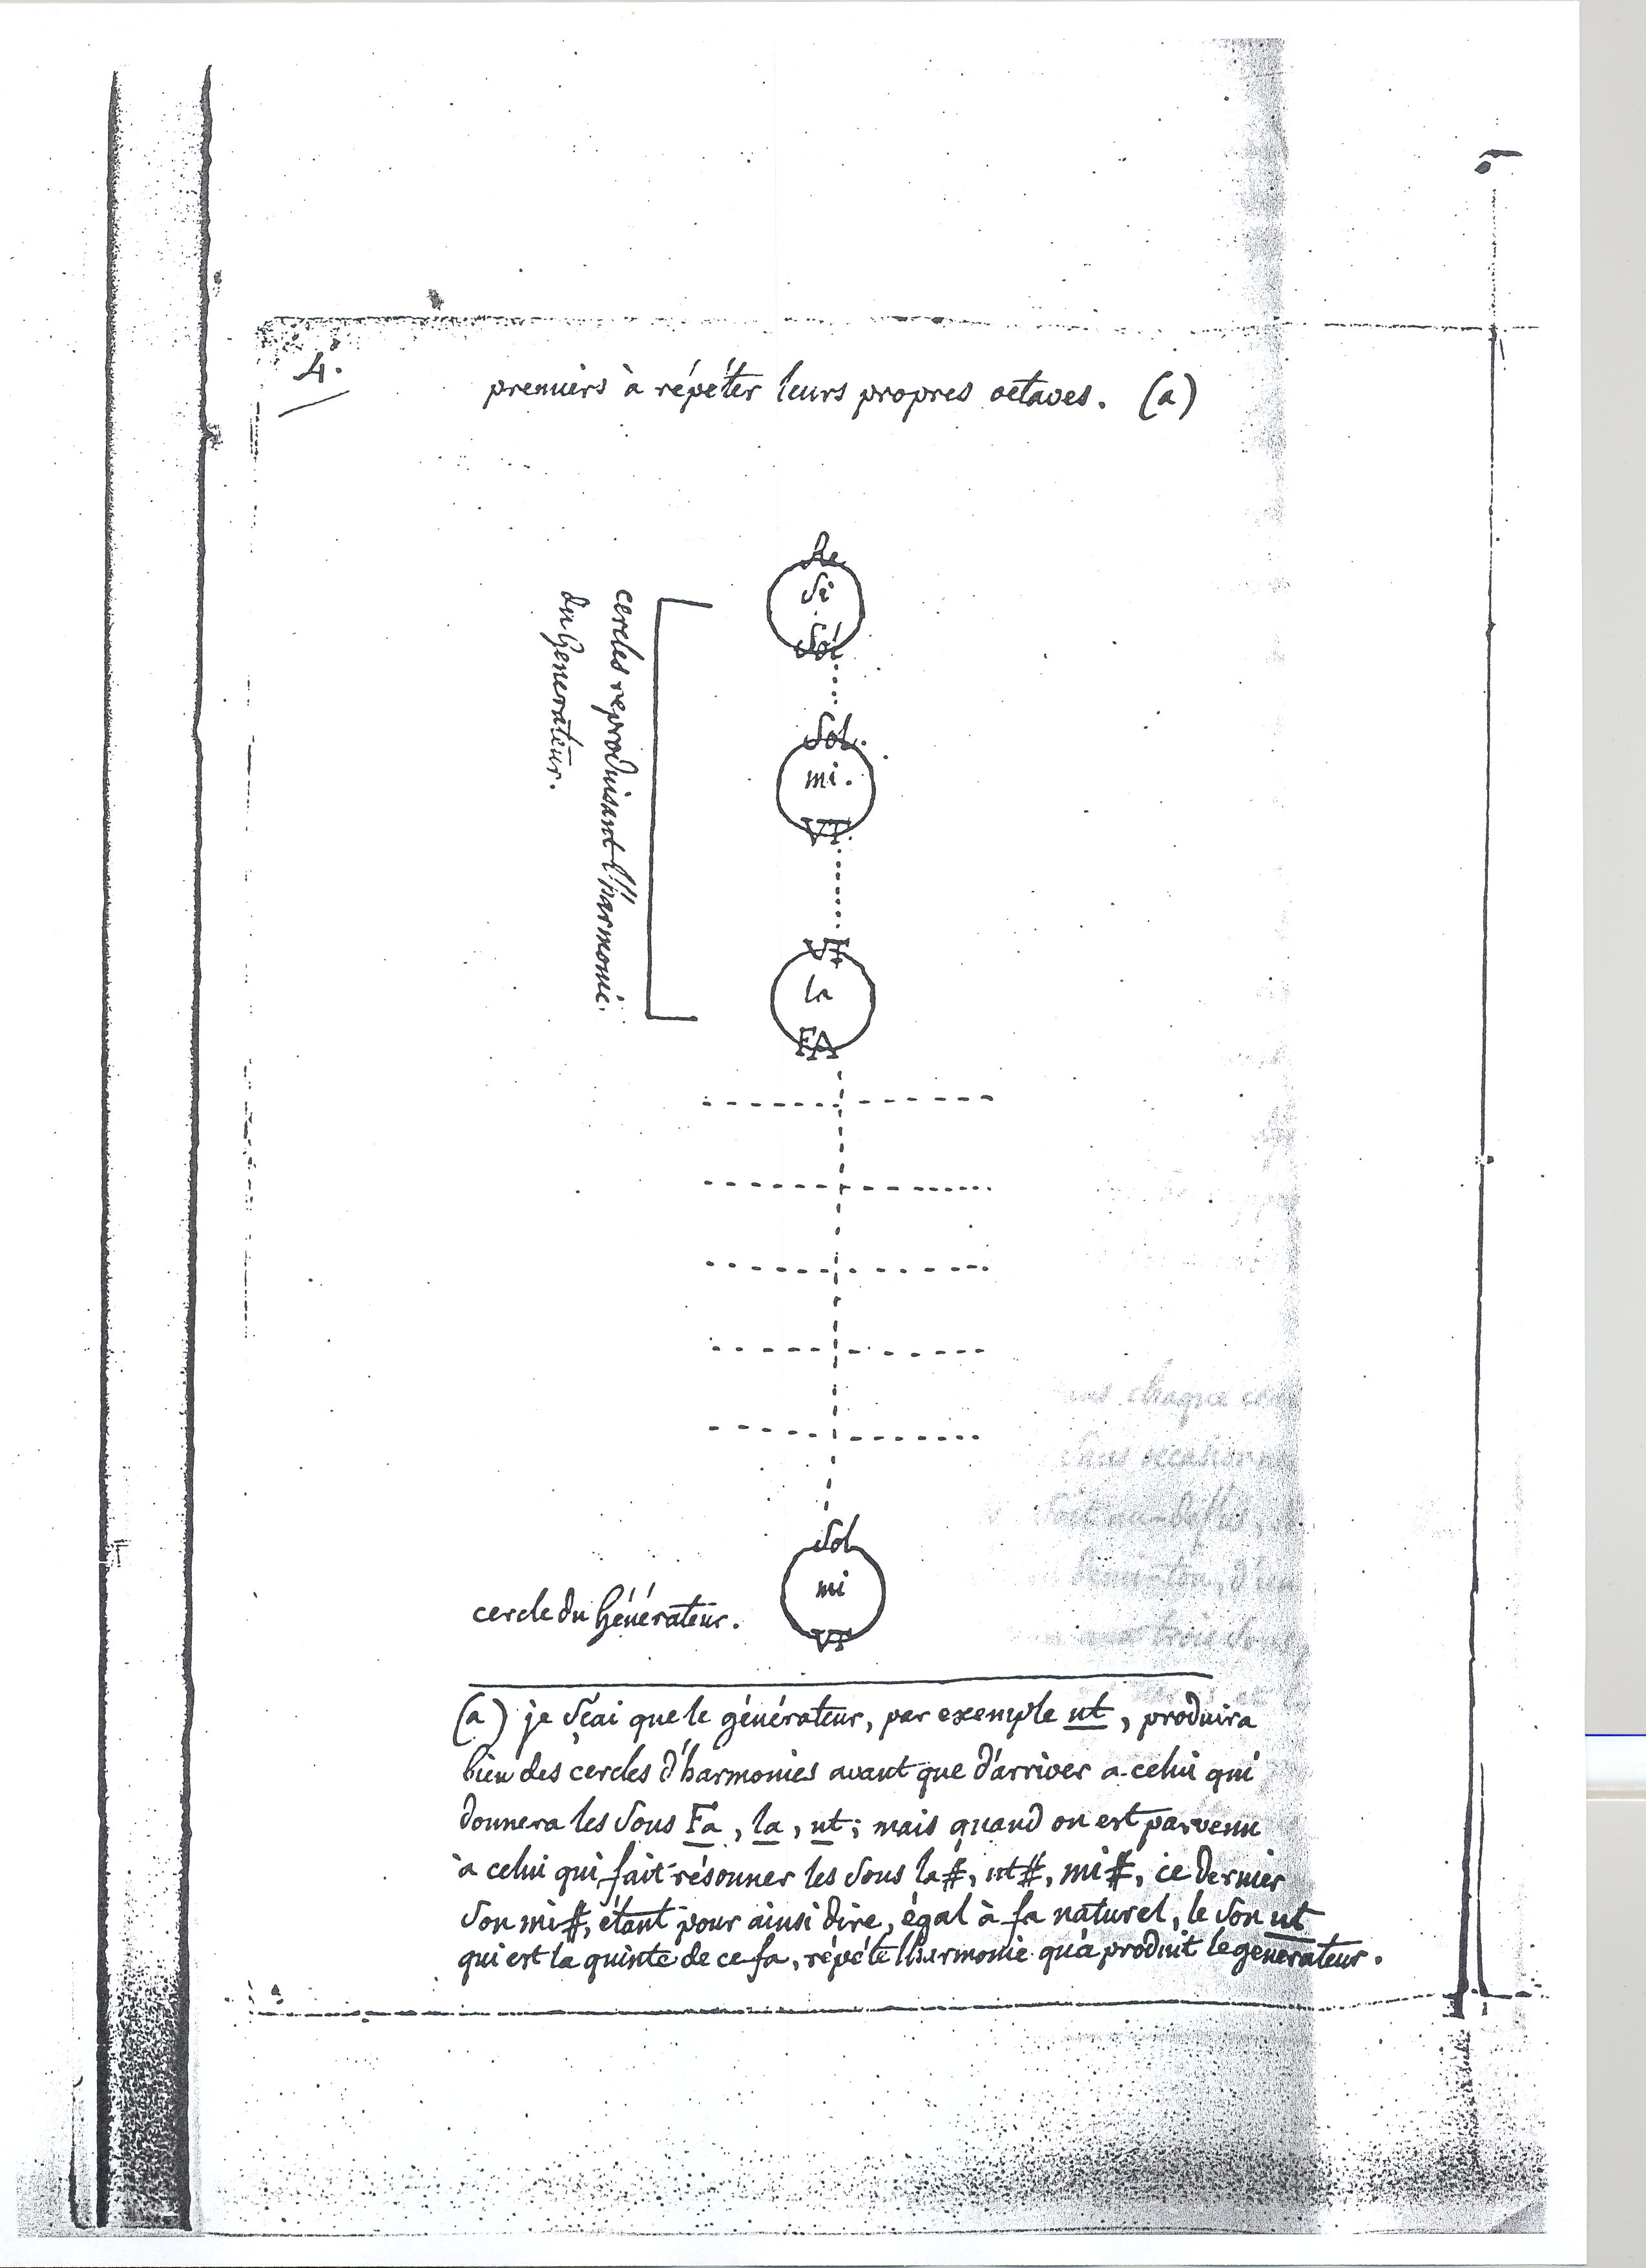 4.
premiers à répéter leurs propres octaves. (a)
Re
Si
Sol
Sol.
mi.
VT
VT
la
FA
cercles reproduisant l'harmonie
du Generateur.
Sol
mi
VT
cercle du Générateur.
(a) je sçai que le générateur, par exemple ut, produira
bien des cercles d'harmonies avant que d'arriver a celui qui
donnera les sons Fa, la, ut; mais quand on est parvenu
à celui qui fait résonner les sons la#, ut#, mi#, ce dernier
son mi#, étant pour ainsi dire, égal à fa naturel, le son ut
qui est la quinte de ce fa, répéte l'harmonie qu'a produit le generateur.
chaque